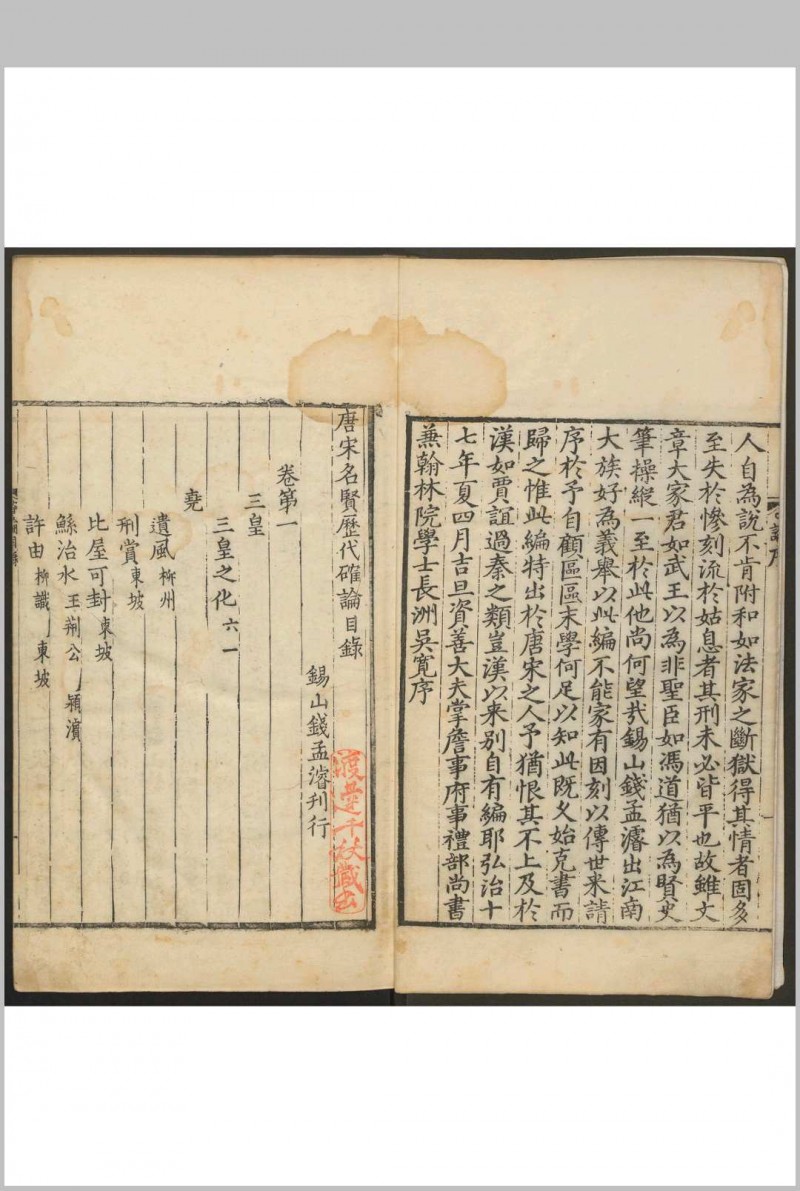 人自為說不肯附和如法家之斷獄得其情者固多
至失於慘刻流於姑息者其刑未必皆平也故雖文
章大家君如武王以為非聖臣如馮道猶以為賢史
筆操縱一至於此他尚何望哉錫山錢孟濬出江南
大族好為義舉以此編不能家有因刻以傳世来請
序於予自顧區區末學何足以知此既乆始克書而
歸之惟此編特出於唐宋之人予猶恨其不上及於
漢如賈誼過秦之類豈漢以来別自有編耶弘治十
七年夏四月吉旦資善大夫掌詹事府事禮部尚書
兼翰林院學士長洲吳寬序
唐宋名賢歷代確論目錄
錫山錢孟濬刊行
卷第一
三皇
三皇之化 六一
堯
遺風 柳州
刑賞 東坡
比屋可封 東坡
鯀治水 王荆公 頴濱
許由 柳識 東坡
渡邊千秋藏書